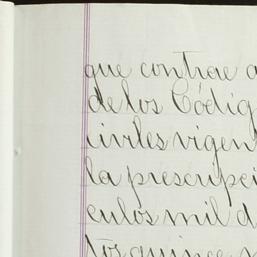 que contrae a
de los Códig
civiles vigen
la prescripci
culos mil d